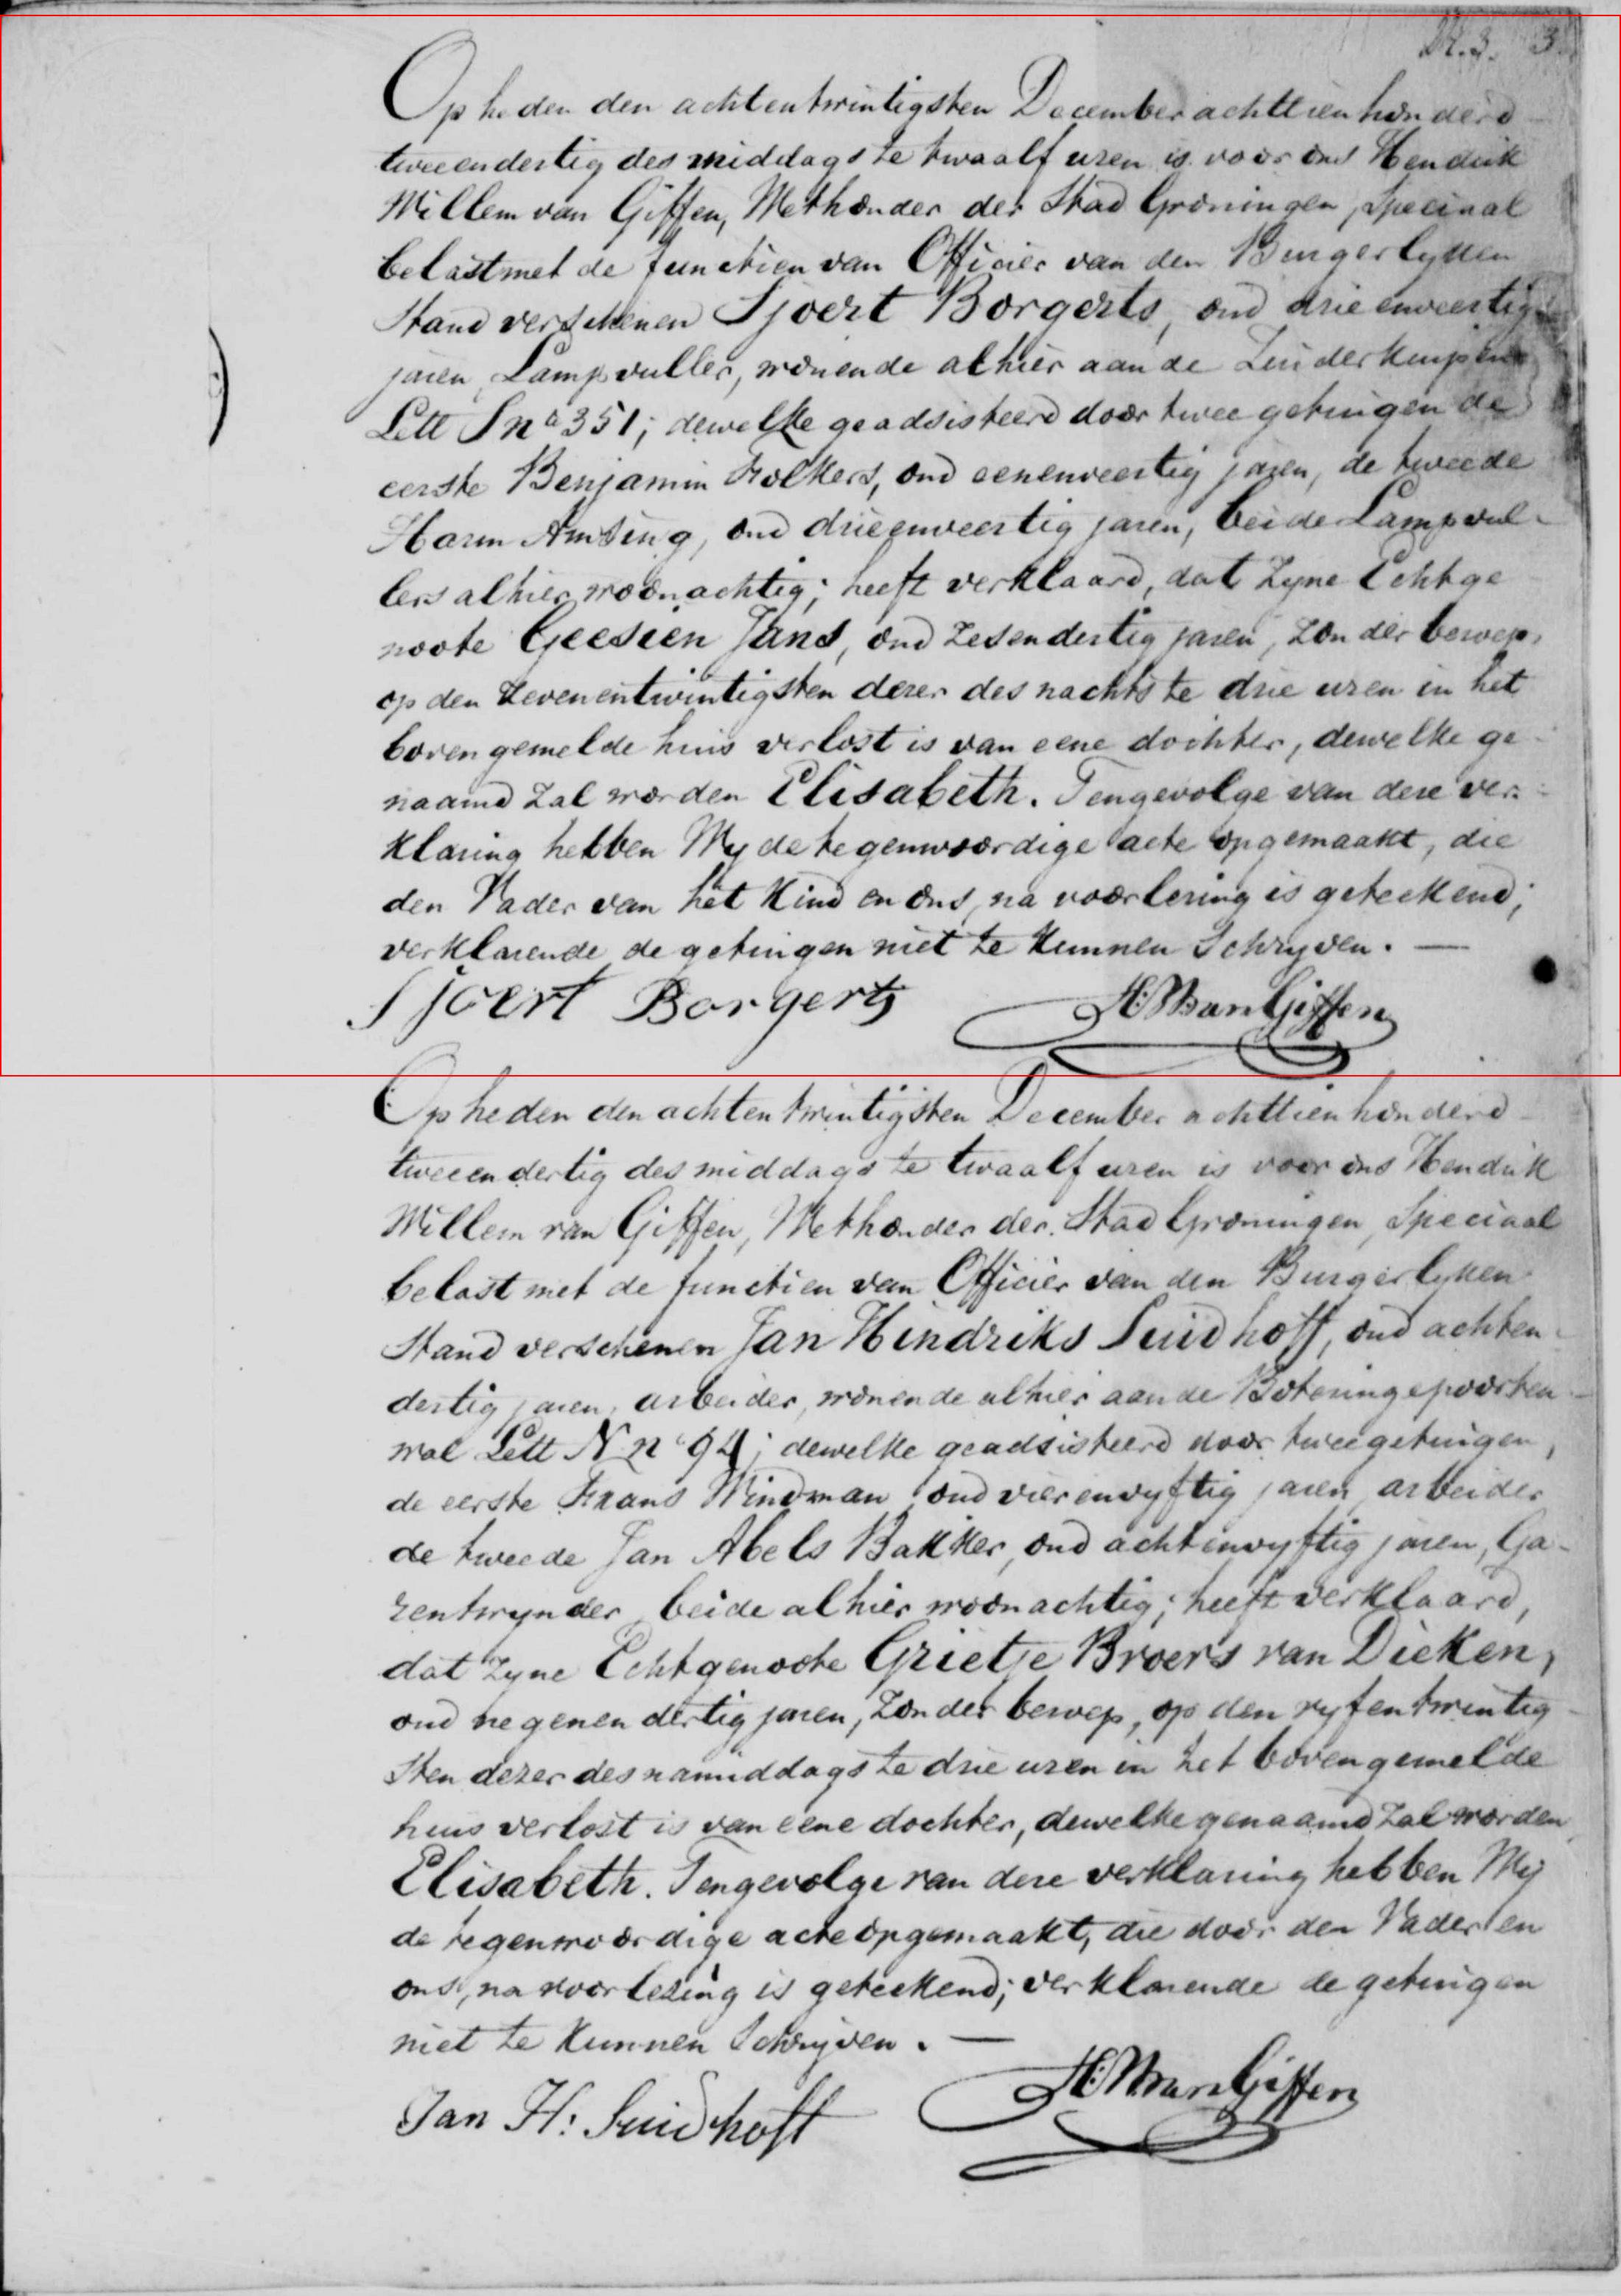 3
Op heden den achtentwintigsten December achttienhonderd
tweeendertig des middags te twaalf uren is voor ons Hendrik
Willem van Giffen, Wethouder der Stad Groningen, Speciaal
belast met de functien van Officier van den Burgerlyken
Stand verschenen Sjoert Borgerts, oud drieenveertig
jaren, Lampvuller, wonende alhier aan de Zuiderkuipen
Lett S no 351; dewelke geadsisteerd door twee getuigen de
eerste Benjamin Folkers, oud eenenveertig jaren, de tweede
Harm Amsing, oud drieenveertig jaren, beide Lampvul-
lers alhier woonachtig; heeft verklaard, dat zyne Echtge
noote Geesien Jans, oud zesendertig jaren, zonder beroep,
op den zevenentwintigsten dezer des nachts te drie uren in het
boven gemelde huis verlost is van eene dochter, dewelke ge-
naamd zal worden Elisabeth. Tengevolge van deze ver-
klaring hebben Wy de tegenwoordige acte opgemaakt, die
den Vader van het Kind en ons, na voorlezing is geteekend;
verklarende de getuigen niet te kunnen Schryven. —
Sjoert Borgerts HWvanGiffen
Op heden den achtentwintigsten December achttienhonderd
tweeendertig des middags te twaalf uren is voor ons Hendrik
Willem van Giffen, Wethouder der Stad Groningen, Speciaal
belast met de functien van Officier van den Burgerlyken
Stand verschenen Jan Hindriks Suidhoff, oud achten-
dertig jaren, arbeider, wonende alhier aan de Boteringepoorten
wal Lett N no 94; dewelke geadsisteerd door twee getuigen,
de eerste Frans Windman, oud vierenvyftig jaren, arbeider
de tweede Jan Abels Bakker, oud achtenvyftig jaren, Ga-
rentwynder, beide alhier woonachtig; heeft verklaard,
dat zyne Echtgenoote Grietje Broers van Dieken,
oud negenendertig jaren, zonder beroep, op den vyfentwintig
sten dezer des namiddags te drie uren in het boven gemelde
huis verlost is van eene dochter, dewelke genaamd zal worden
Elisabeth. Tengevolge van deze verklaring hebben Wij
de tegenwoordige acte opgemaakt, die door den Vader en
ons, na voorlezing is geteekend; verklarende de getuigen
niet te kunnen Schryven. —
Jan H: Suidhoff HWvanGiffen